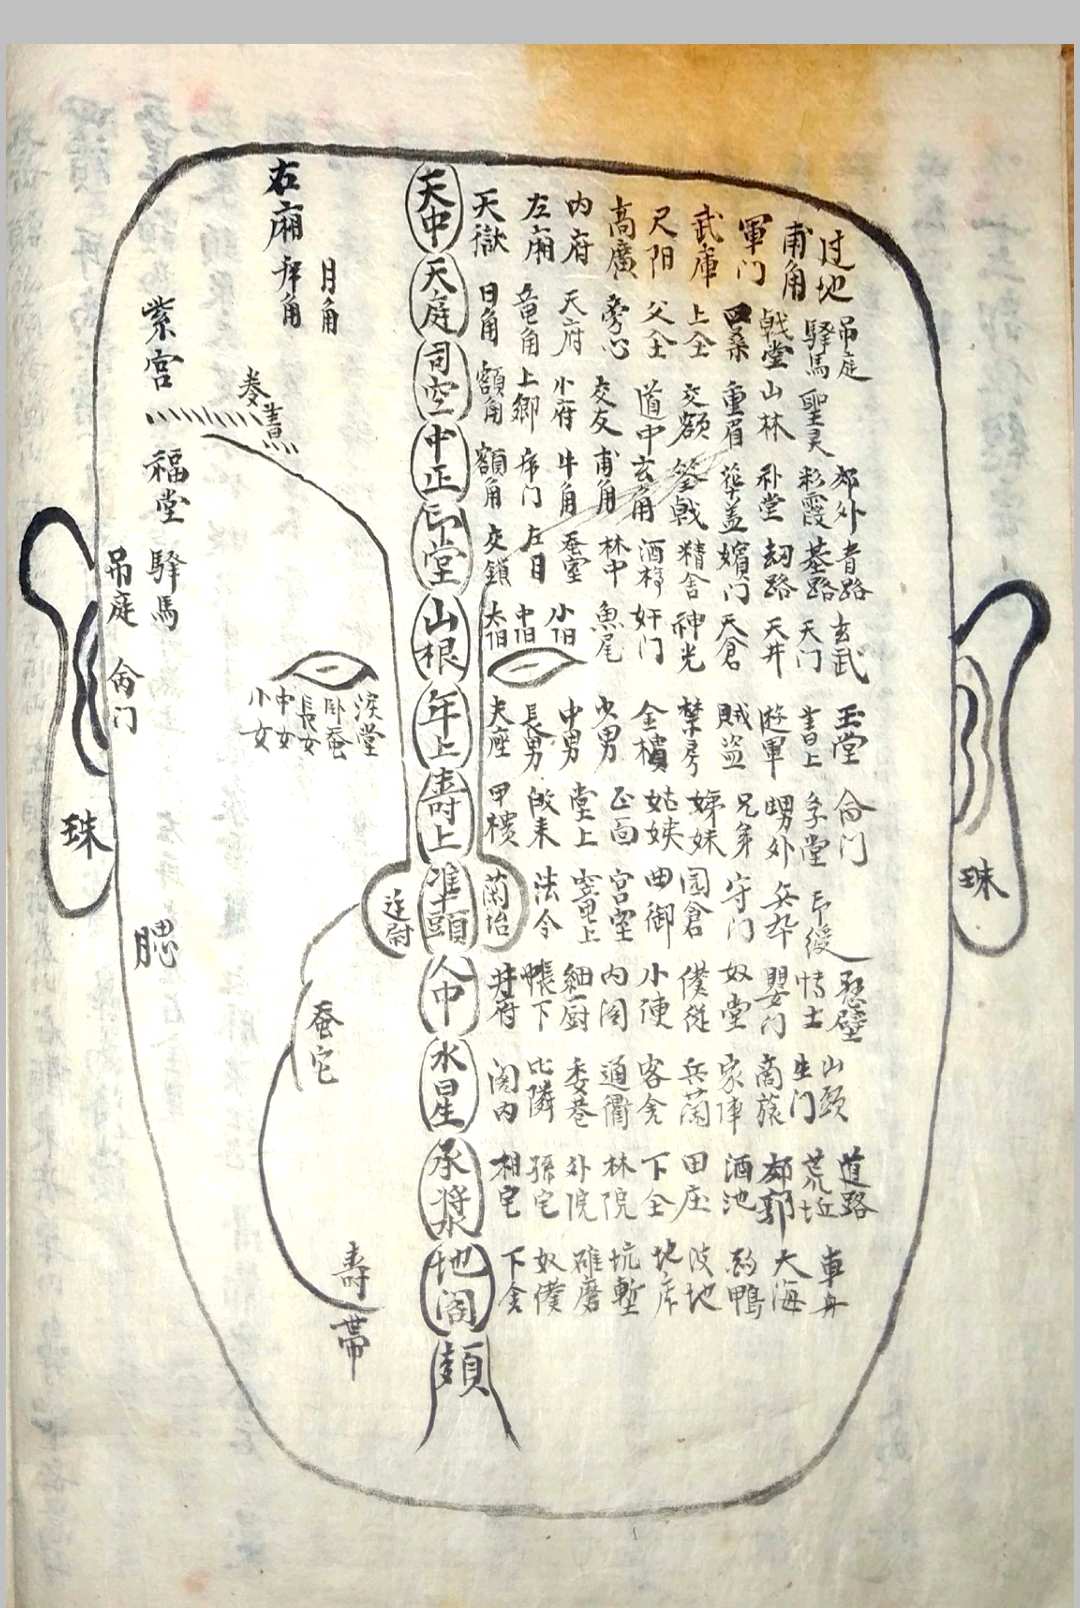 天中
天獄
左廂
内府
高廣
尺阳
武庫
軍门
甫角
过地
天庭
日角
竜角
天府
旁心
父全
上全
戟堂
驛馬
吊庭
司空
額角
上鄉
小府
交友
道中
交額
重眉
山林
聖灵
中正
額角
牛角
甫角
玄角
華盖
补堂
彩霞
郊外
印堂
交鎖
左目
蚕室
林中
酒樽
精舍
嬪门
劫路
基路
青路
山根
太阳
中阳
小阳
魚尾
奸门
神光
天倉
天井
天门
玄武
年上
夫座
長男
中男
少男
金樻
禁房
賊盗
遊軍
書上
玉堂
壽上
甲樻
堂上
正面
姑姨
姊妹
兄弟
甥外
学堂
命门
准頭
蘭坮
法令
竈上
宮室
典御
園倉
守门
兵卒
印綬
人中
井府
帳下
細厨
内阁
小使
僕從
奴堂
嬰门
博士
懸壁
水星
阁内
比隣
委巷
通衢
客舍
兵蘭
商旅
生门
山頭
承漿
祖宅
孫宅
外院
林院
下全
田庄
酒池
郊郭
荒坵
道路
地阁
下舍
奴僕
碓磨
坑塹
地库
波池
鵝鴨
大海
車舟
頦
右廂
月角
紫宮
福堂
驛馬
吊庭
命门
淚堂
卧蚕
長女
中女
小女
廷尉
珠
珠
腮
蚕宅
壽帯